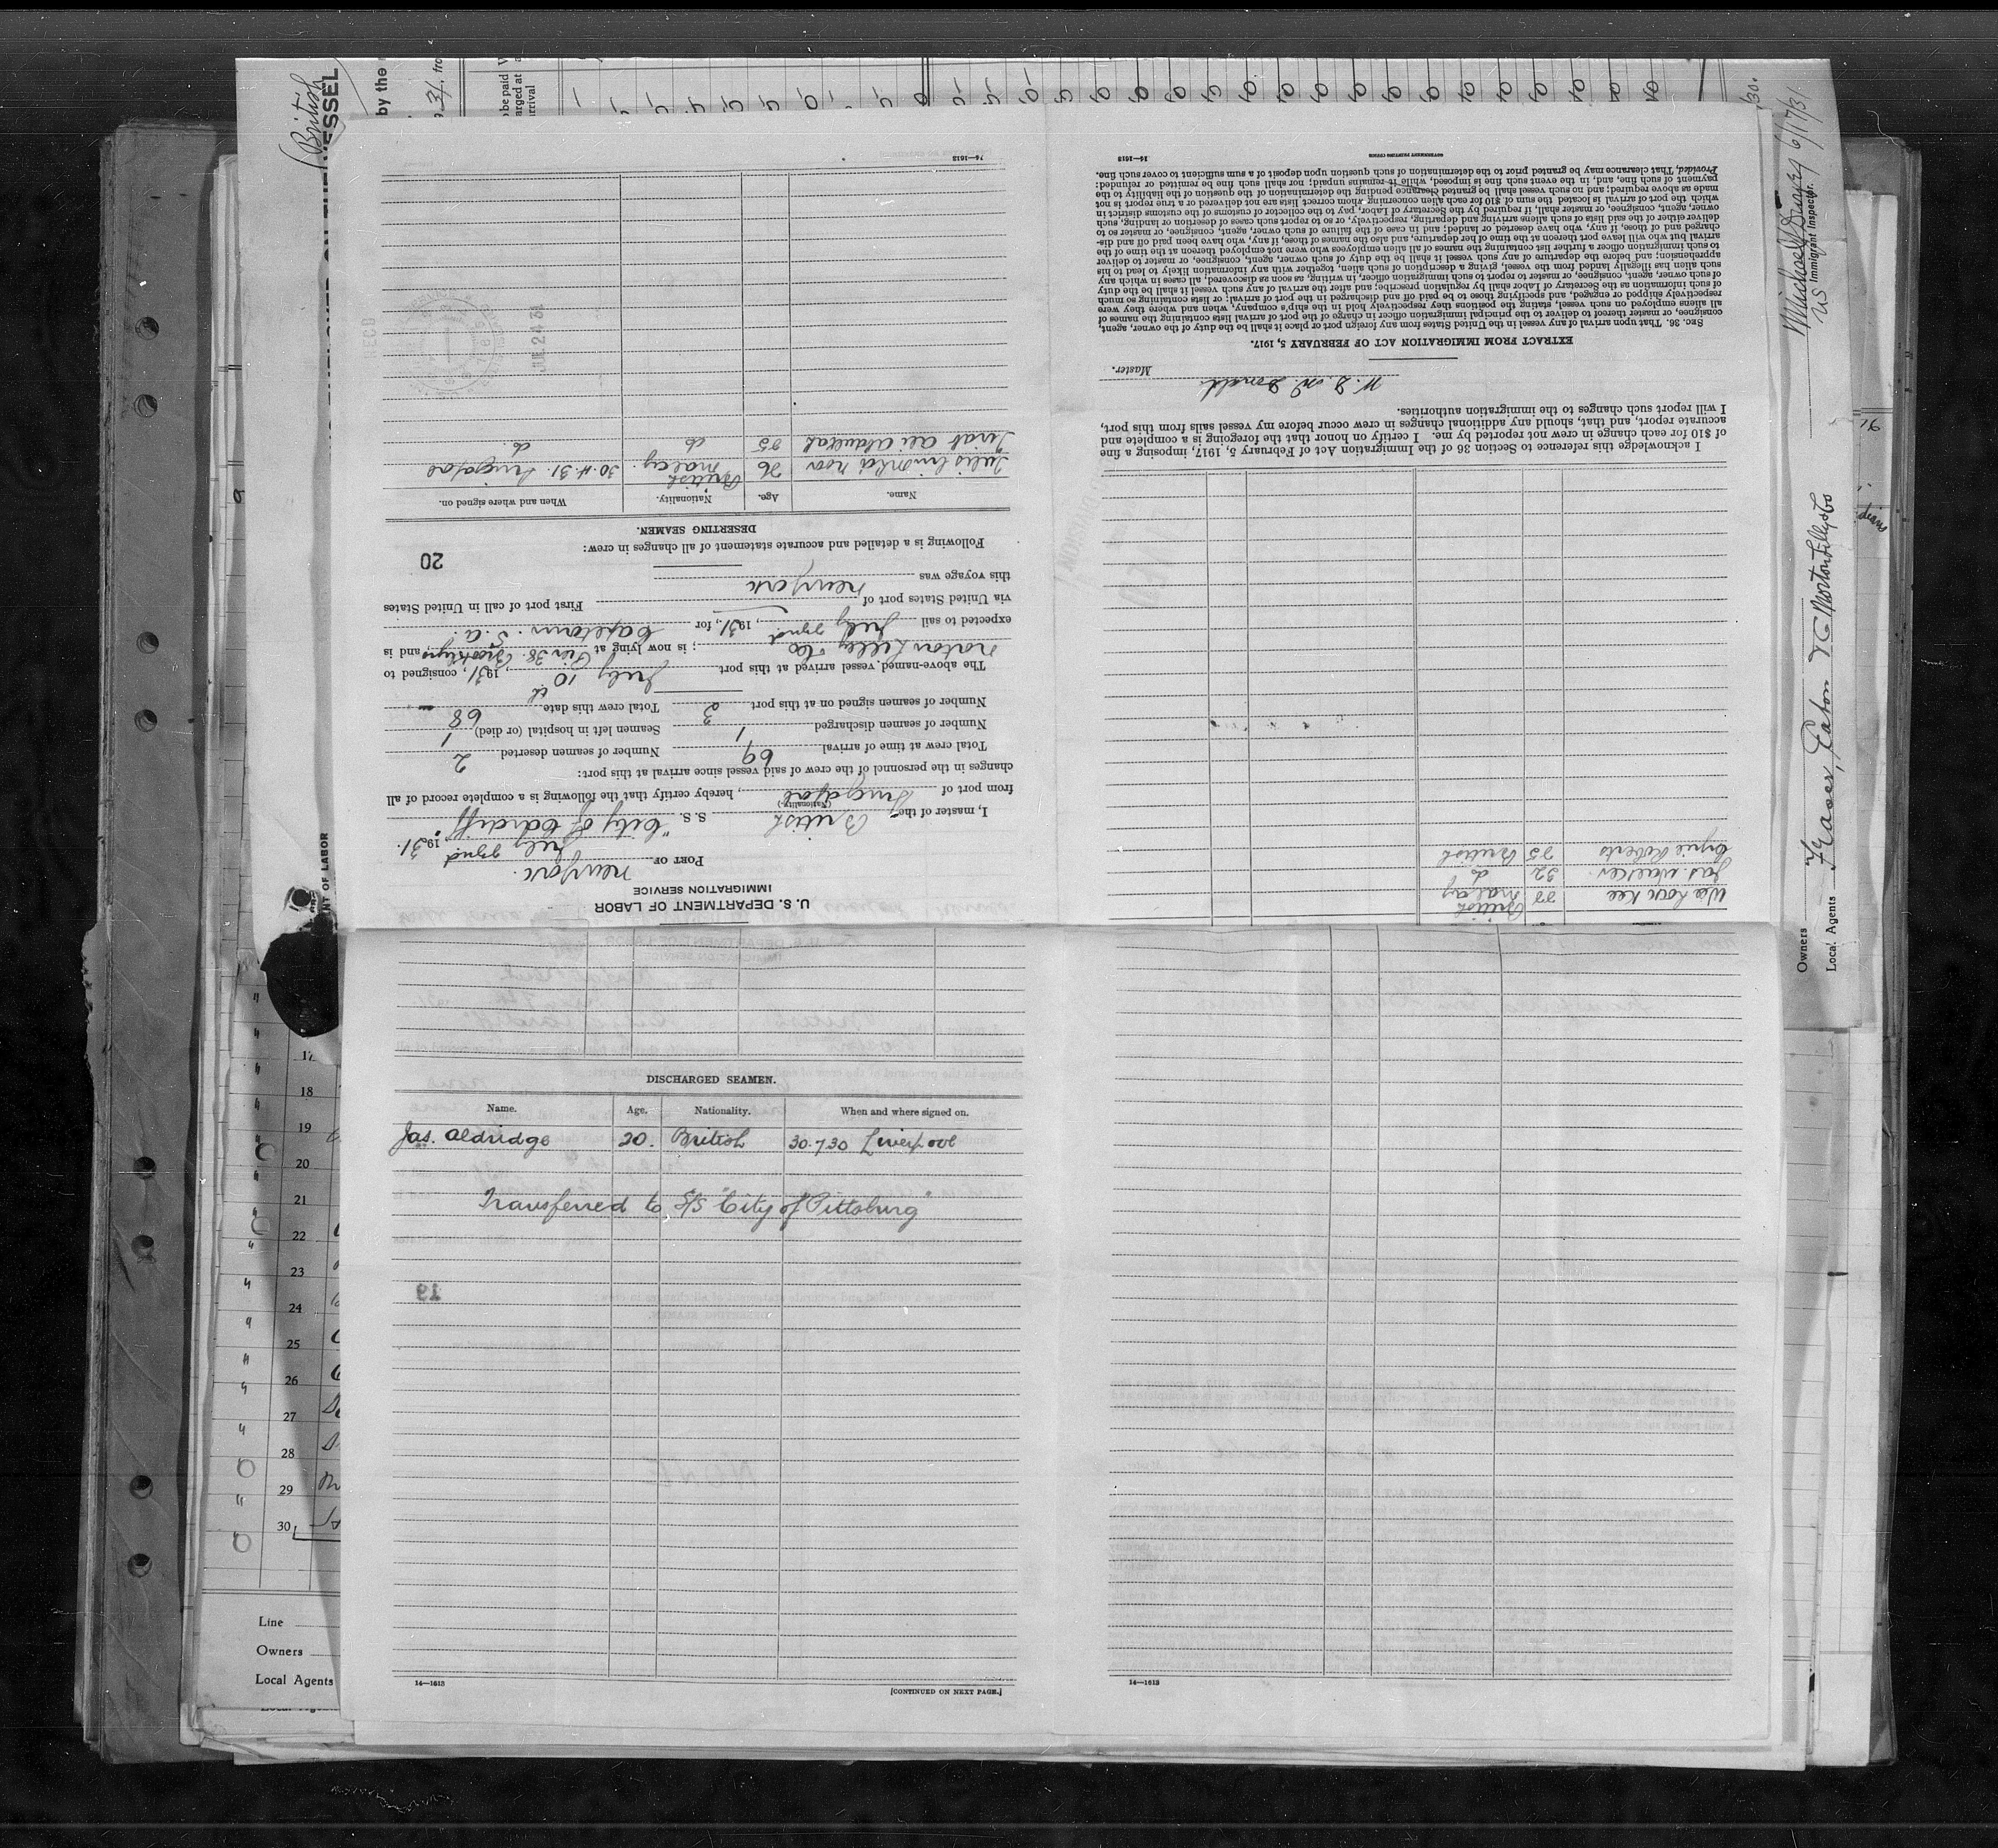 U. S. DEPARTMENT OF LABOR
IMMIGRATION SERVICE
PORT OF New York.
July 22nd, 1931.
I, master of the British S. S. "City of Cardiff",
(Nationality)
from port of Singapore, hereby certify that the following is a complete record of all
changes in the personnel of the crew of said vessel since arrival at this port:
Total crew at time of arrival 69 Number of seamen deserted 2
Number of seamen discharged 1 Seamen left in hospital (or died) 1
Number of seamen signed on at this port 3 Total crew this date 68
The above-named vessel arrived at this port July 10th, 1931, consigned to
Norton Lilly & Co; is now lying at Pier 38 Brooklyn, and is
expected to sail July 22nd, 1931, for Capetown. S. A.
via United States port of First port of call in United States
this voyage was New York
Following is a detailed and accurate statement of all changes in crew:
20
DESERTING SEAMEN.
Name. Age. Nationality. When and where signed on.
26 British Malay. 30.4.31. Singapore
25 do do.
JUL 24 31
REC'D
14—1613
Wee 22 British Malay
Jas. Walker. 32 d
Roberts 25 British
I acknowledge this reference to Section 36 of the Immigration Act of February 5, 1917, imposing a fine
of $10 for each change in crew not reported by me. I certify on honor that the foregoing is a complete and
accurate report, and that, should any additional changes in crew occur before my vessel sails from this port,
I will report such changes to the immigration authorities.
Master.
EXTRACT FROM IMMIGRATION ACT OF FEBRUARY 5, 1917.
Sec. 36. That upon arrival of any vessel in the United States from any foreign port or place it shall be the duty of the owner, agent,
consignee, or master thereof to deliver to the principal immigration officer in charge of the port of arrival lists containing the names of
all aliens employed on such vessel, stating the positions they respectively hold in the ship's company, when and where they were
respectively shipped or engaged, and specifying those to be paid off and discharged in the port of arrival; or lists containing so much
of such information as the Secretary of Labor shall by regulation prescribe; and after the arrival of any such vessel it shall be the duty
of such owner, agent, consignee, or master to report to such immigration officer, in writing, as soon as discovered, all cases in which any
such alien has illegally landed from the vessel, giving a description of such alien, together with any information likely to lead to his
apprehension; and before the departure of any such vessel it shall be the duty of such owner, agent, consignee, or master to deliver
to such immigration officer a further list containing the names of all alien employees who were not employed thereon at the time of the
arrival but who will leave port thereon at the time of her departure, and also the names of those, if any, who have been paid off and dis-
charged and of those, if any, who have deserted or landed; and in case of the failure of such owner, agent, consignee, or master so to
deliver either of the said lists of such aliens arriving and departing, respectively, or so to report such cases of desertion or landing, such
owner, agent, consignee, or master shall, if required by the Secretary of Labor, pay to the collector of customs of the customs district in
which the port of arrival is located the sum of $10 for each alien concerning whom correct lists are not delivered or a true report is not
made as above required; and no such vessel shall be granted clearance pending the determination of the question of the liability to the
payment of such fine, and, in the event such fine is imposed, while it remains unpaid; nor shall such fine be remitted or refunded:
Provided, That clearance may be granted prior to the determination of such question upon deposit of a sum sufficient to cover such fine.
14—1613 GOVERNMENT PRINTING OFFICE
DISCHARGED SEAMEN.
Name. Age. Nationality. When and where signed on.
Jas. Aldridge 20. British 30.7.30 Liverpool
Transferred to S/S "City of Pittsburg"
19
14—1613
[CONTINUED ON NEXT PAGE.]
14—1613
(British
VESSEL
by the
31. fro
be paid
arged at
arrival
NT OF LABOR
17
18
19
20
21
22
23
24
25
26
27
28
29
30
Line
Owners
Local Agents
Michael 6/17/31
US Immigrant Inspector.
Owners
Local Agents Norton Lilly & Co